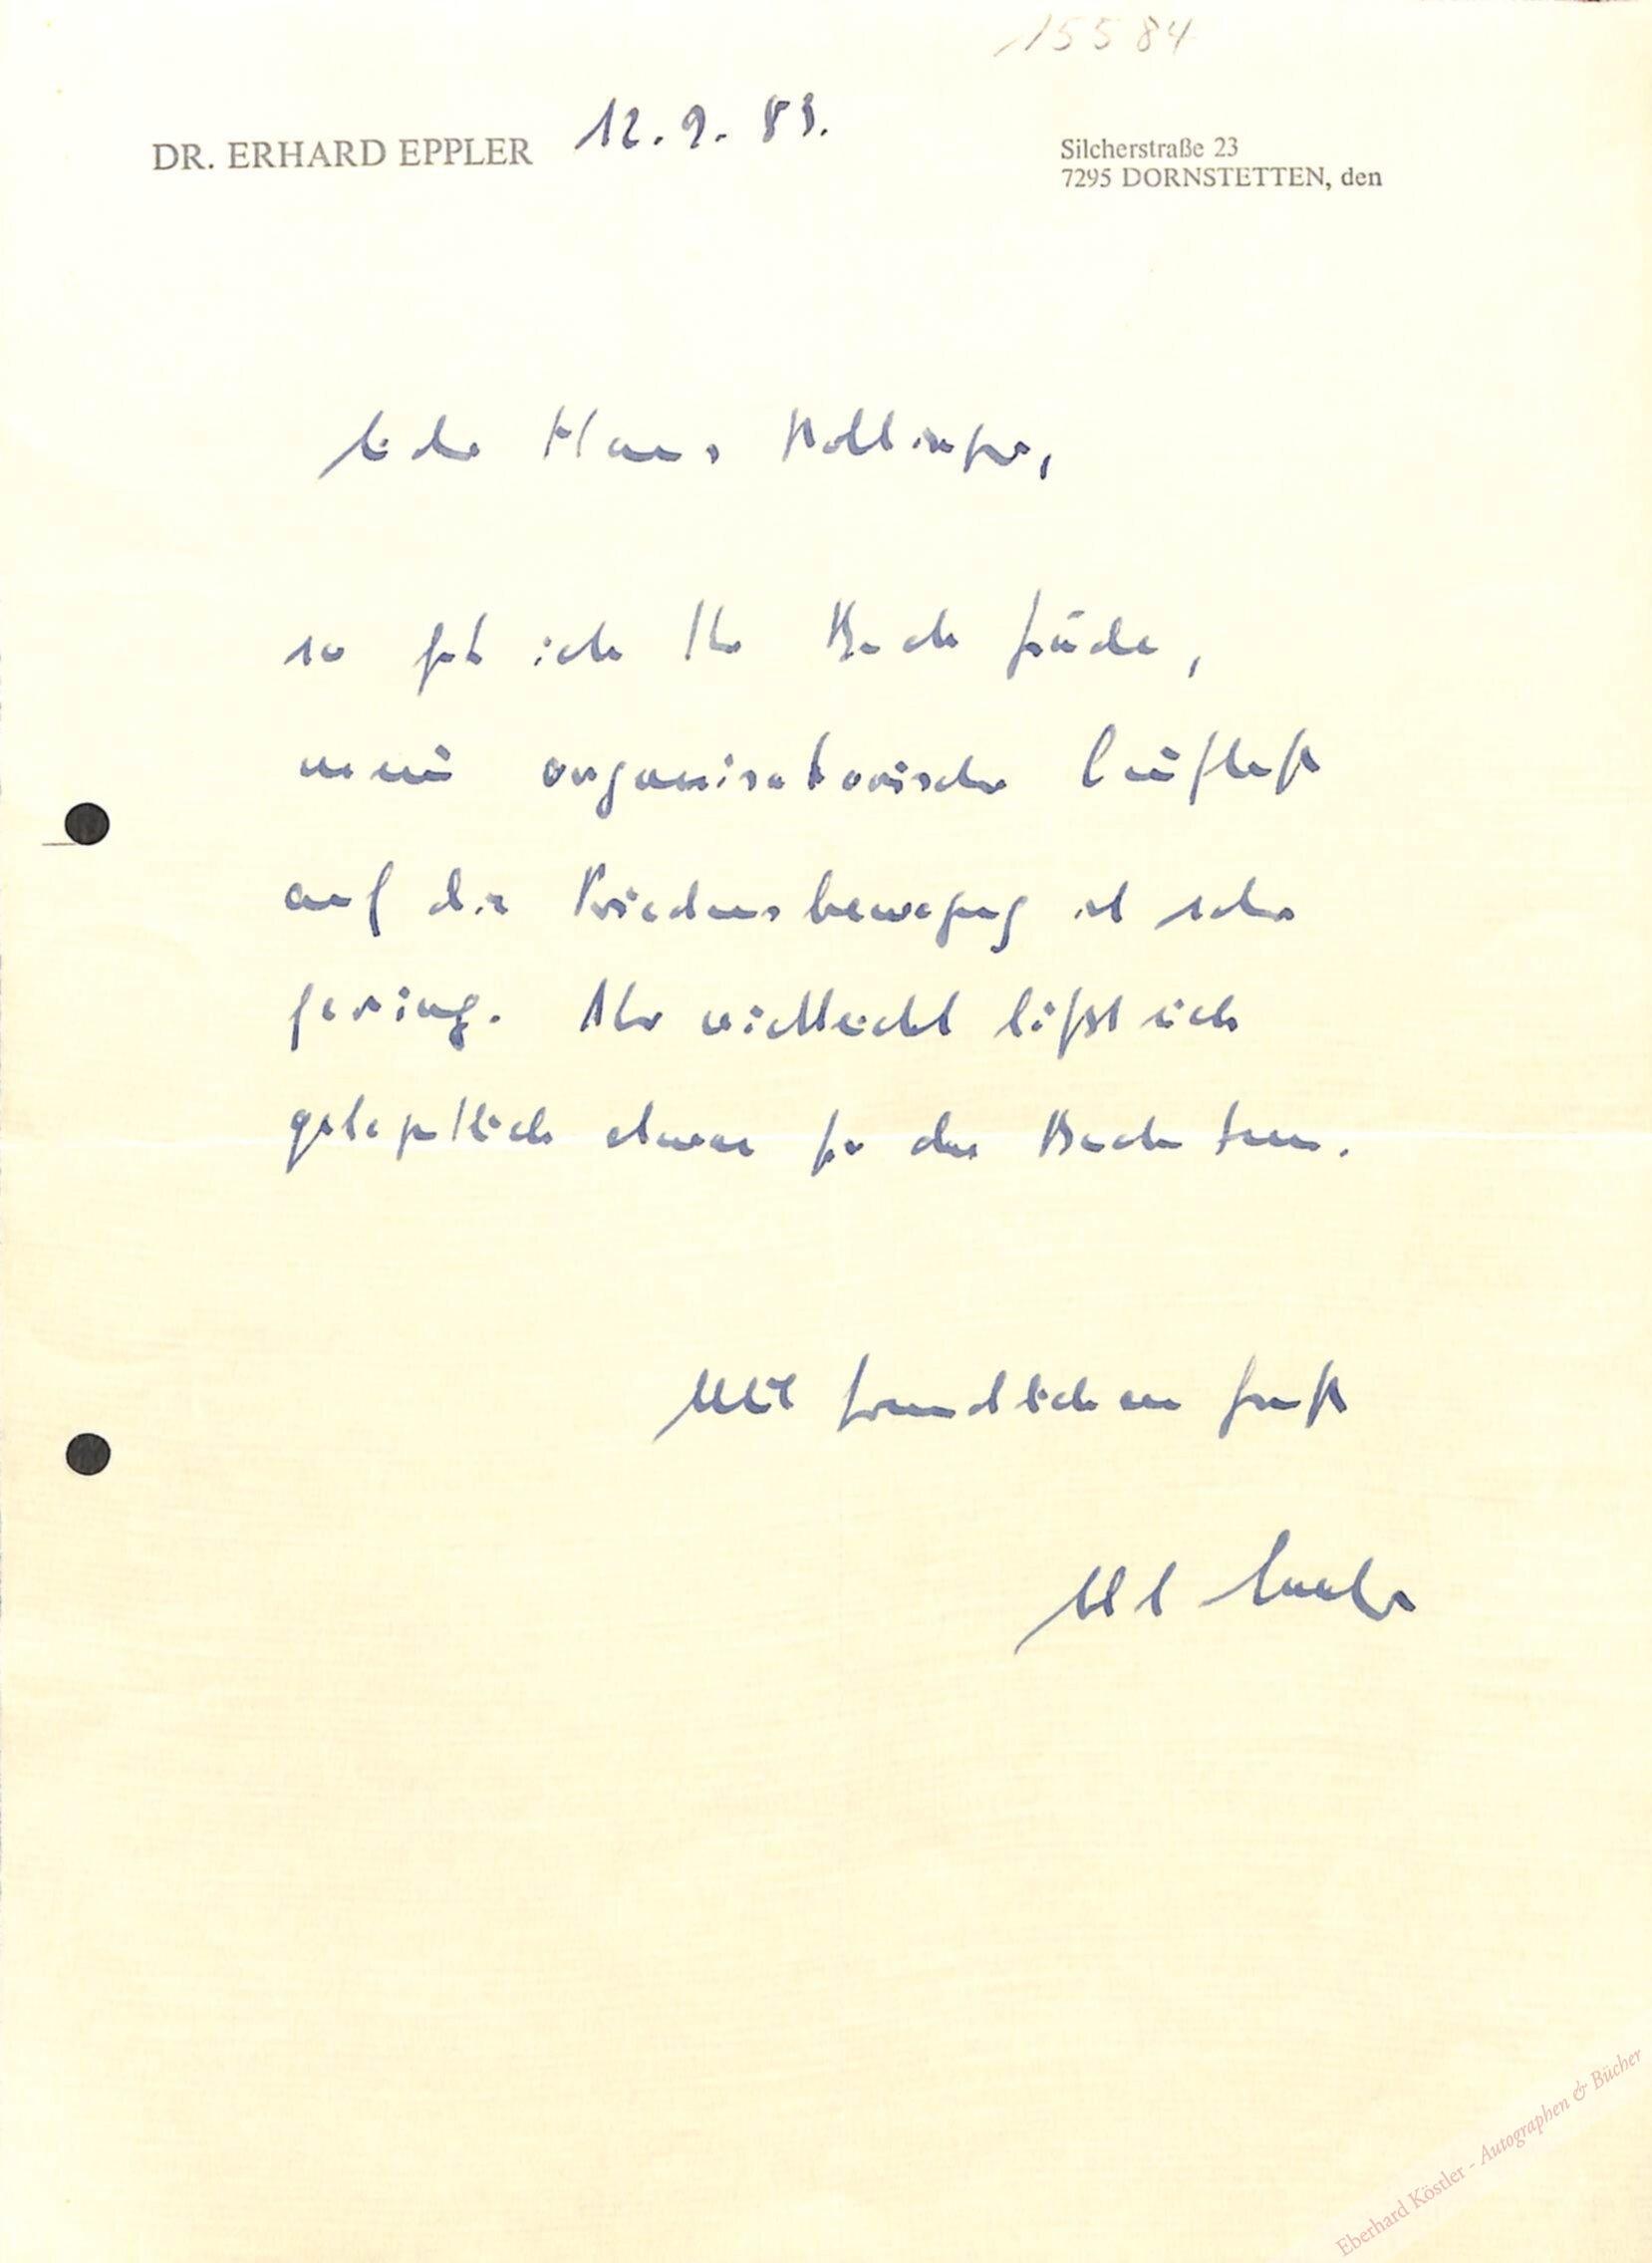 15584
DR. ERHARD EPPLER 12.9.83.
Silcherstraße 23
7295 DORNSTETTEN, den
Lieber Hans
so gut ich Ihr Buch finde,
mein organisatorischer Einfluß
auf die Friedensbewegung ist sehr
gering. Aber vielleicht läßt sich
gelegentlich etwas für das Buch tun.
Mit freundlichem Gruß
Eppler
Eberhard Köstler - Autographen & Bücher